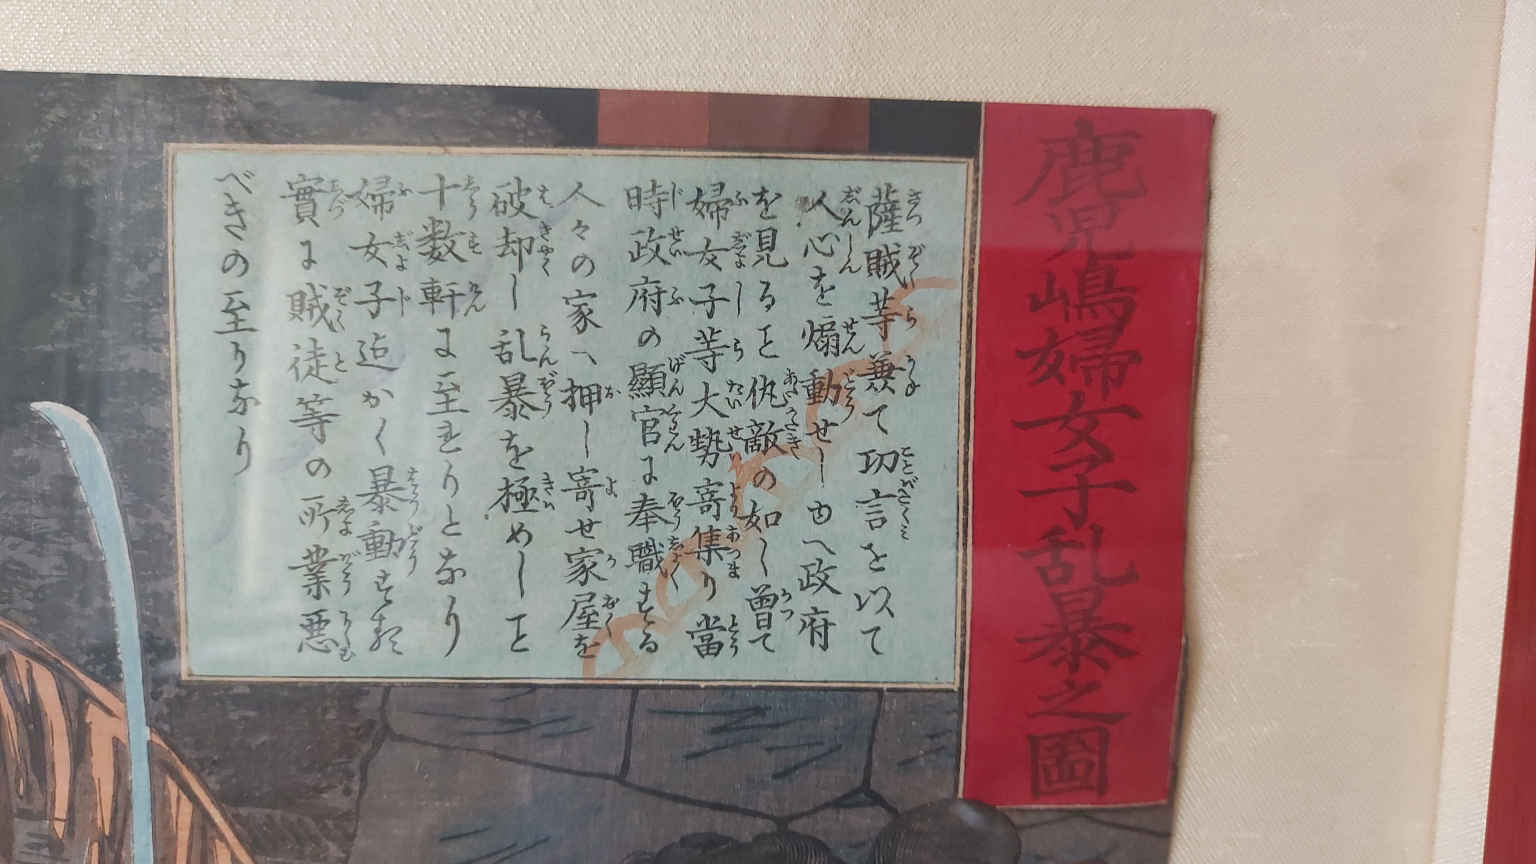 鹿児嶋婦女子乱暴之圖
薩賊等兼て功言を以て
人心を煽動せしゆへ政府
を見ること仇敵の如く曽て
婦女子等大勢寄集り當
時政府の顯官に奉職する
人々の家へ押し寄せ家屋を
破却し乱暴を極めしこと
十数軒に至れりとなり
婦女子迠かく暴動する
實に賊徒等の所業悪む
べきの至りなり